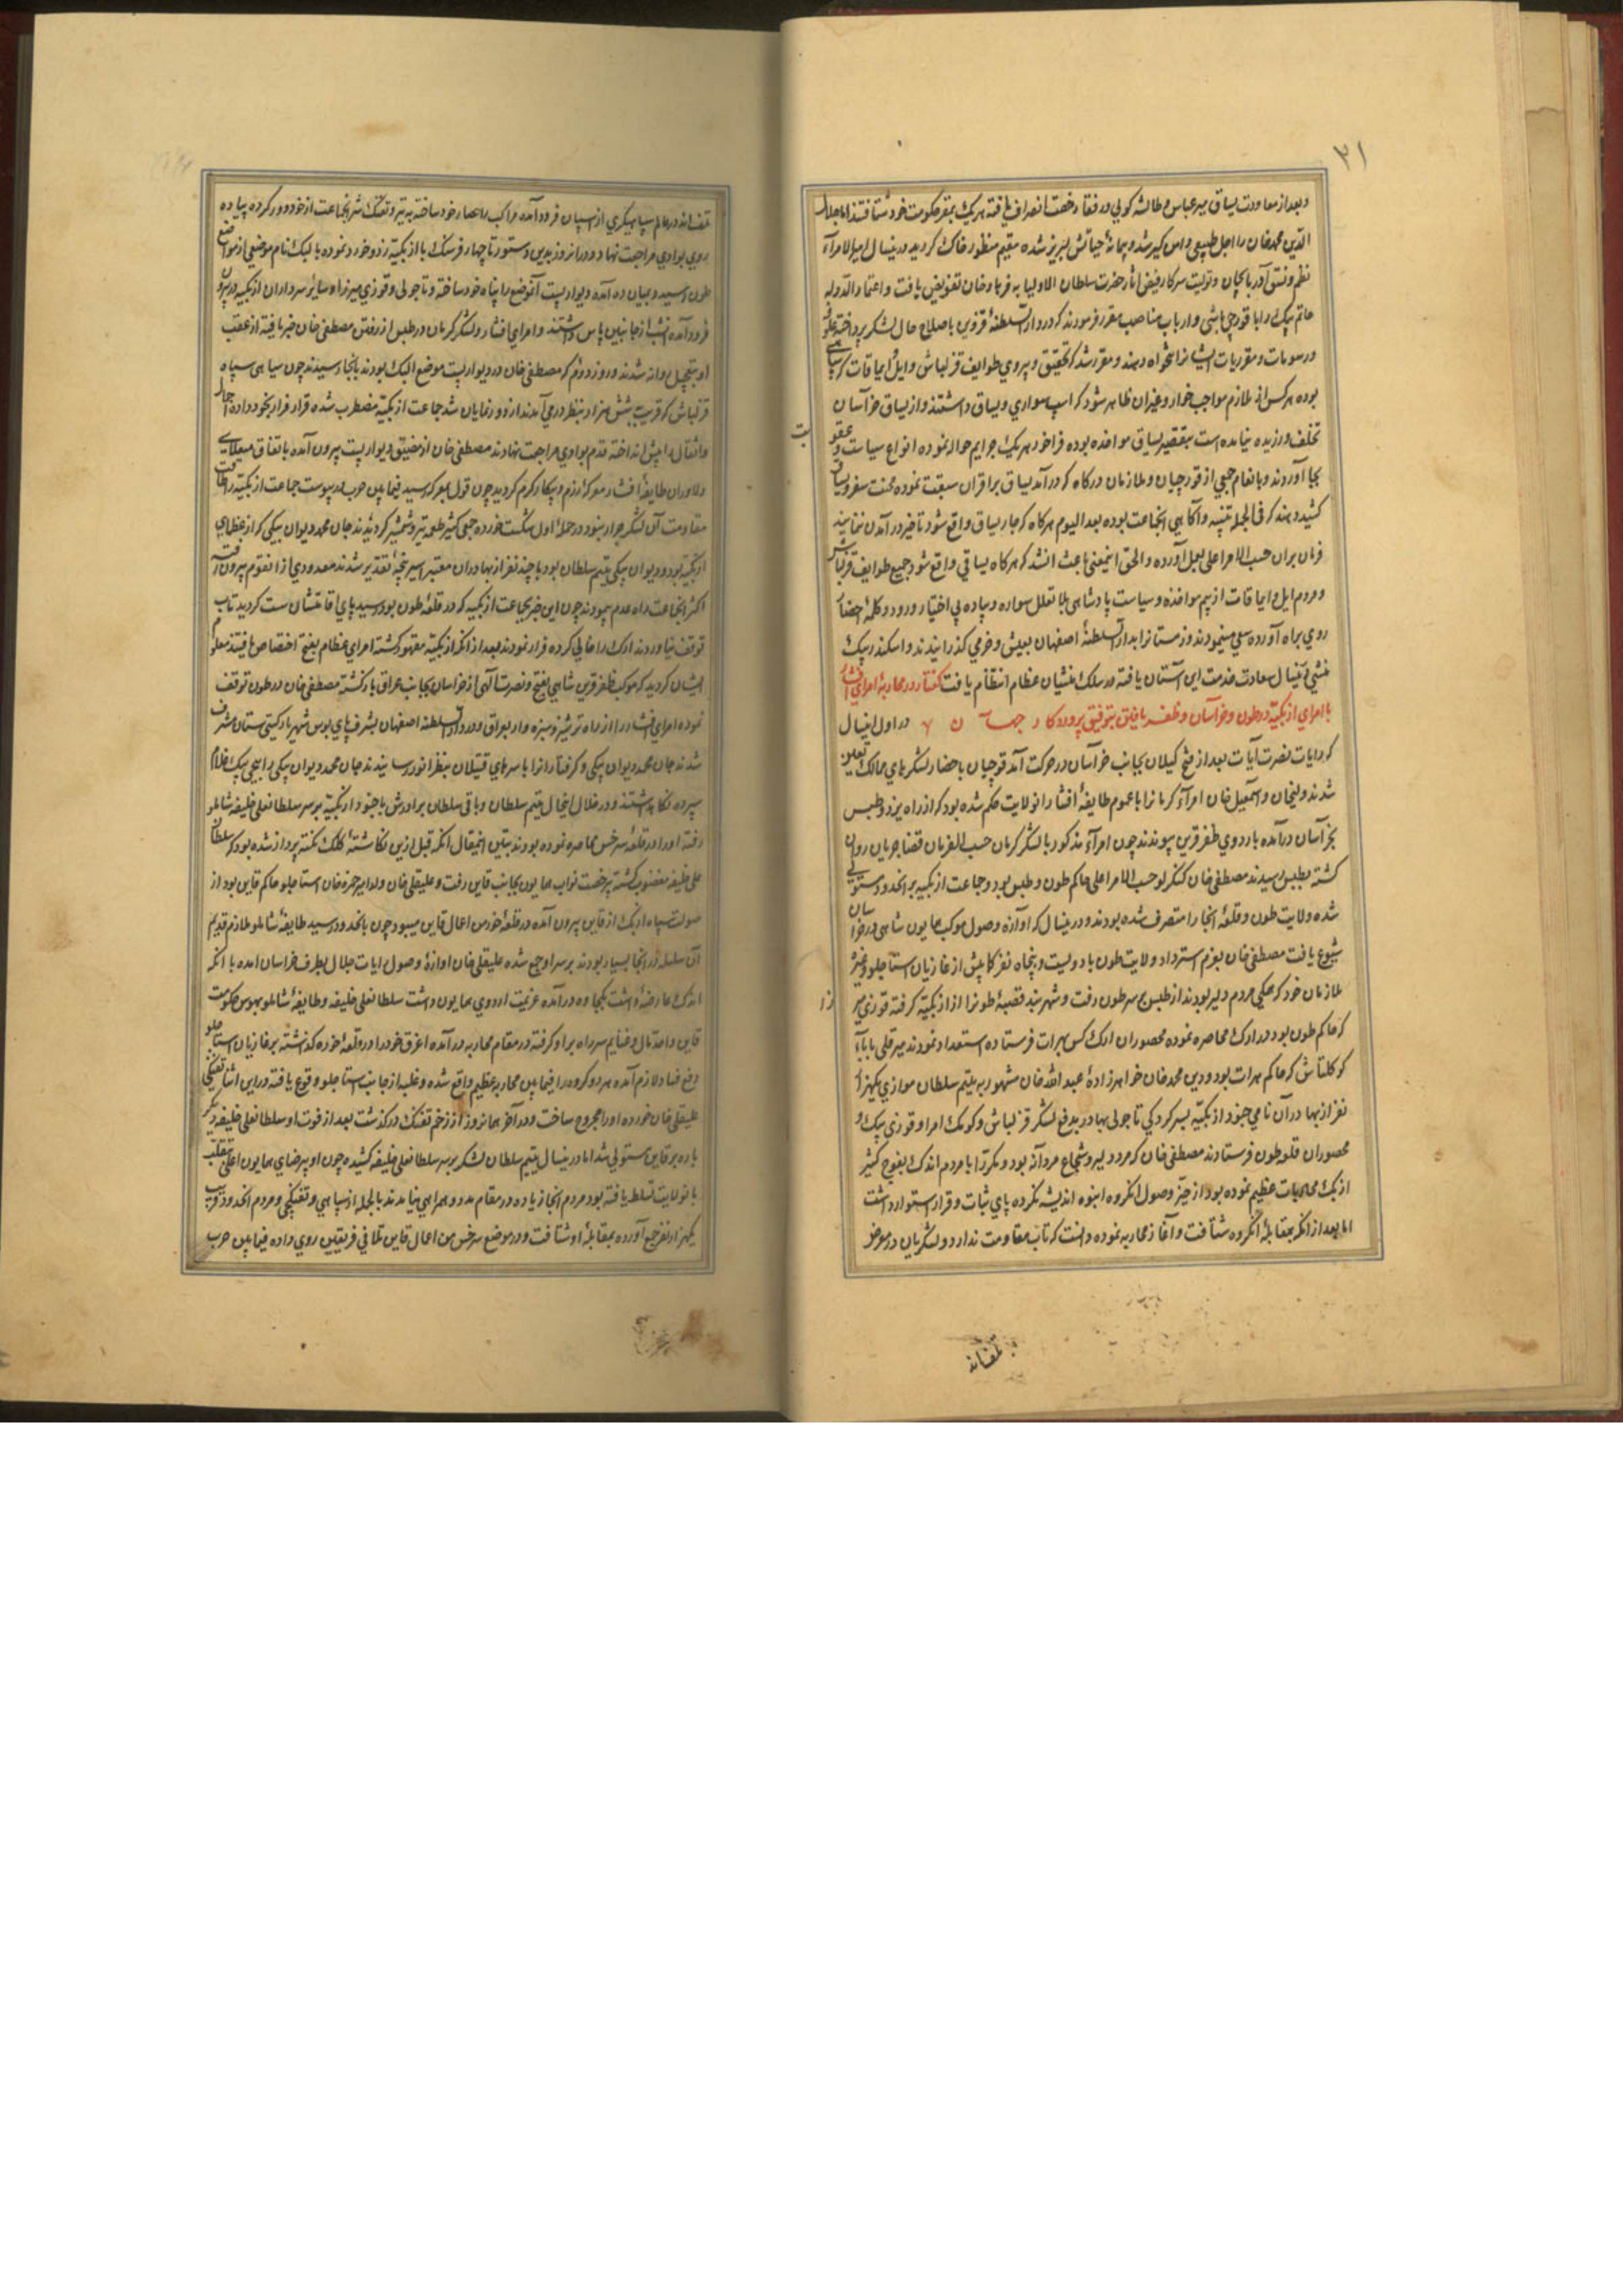 ۳۱
و بعد از معاودت یساق میر عباس و طالشه کولی و رفقا رخصت انصراف یافته هر یک بمقر حکومت خود شتافتند اما جلال
الدین محمدخان را اجل طبیعی دامن کیر شد و پیمانهٔ حیاتش لبریز شده مقیم منظور خاک کردید درینسال امیرالامرآء
نظم و نسق آذربایجان و تولیت سرکار فیض آثار حضرت سلطان الاولیا به فرهادخان تفویض یافت و اعتماد الدوله
حاتم بیک را با قورچی باشی و ارباب مناصب مقرر فرمودند که در دار السلطنهٔ قزوین باصلاح حال لشکر پرداخته علوفه
و رسومات و مقرریات ایشانرا تنخواه دهند و مقرر شد که تحقیق و پیروی طوایف قزلباش و ایل و ایماقات کرده
بوده هر کس از ملازم مواجب خوار و غیر آن ظاهر شود که اسب سواری و یساق داشتند و از یساق خراسان
تخلف ورزیده نیامده است بتقصیر یساق مواخذه بوده فراخور هر یک جرایم حواله نموده انواع سیاست و عقو
بت
بجا آوردند و بانعام جمعی از قورچیان و ملازمان درکاه که در آمد یساق بر اقران سبقت نموده محنت سفر و یساق
کشیده‌اند که فی الجمله تنبیه و آکاهی انجماعت بوده بعد الیوم هر کاه که جار یساق واقع شود تاخیر در آمدن ننمایند
فرمان بران حسب الامر اعلی بعمل آورده و الحق اینمعنی باعث انشد که هر کاه یساقی واقع شود جمیع طوایف قزلباش
و مردم ایل و ایماقات از بیم مواخذه و سیاست پادشاهی بلا تعلل سواره و پیاده بی اختیار ورود و کلمهٔ احضار
روی براه آورده سعی مینمودند و زمستانرا بدار السلطنهٔ اصفهان بعیش و خرمی کذرانیدند و اسکندر بیک
منشی در اینسال سعادت خدمت این آستان یافته در سلک منشیان عظام انتظام یافت کفتار در محاربهٔ امرای افشار
با امرای ازبکیه در طون و خراسان و ظفر یافتن بتوفیق پروردکار جهان ۷ در اول اینسال
که رایات نصرت آیات بعد از فتح کیلان بجانب خراسان در حرکت آمد قورچیان باحضار لشکرهای ممالک تعیین
شدند ولیخان و اسمعیل خان امرآء کرمانرا با عموم طایفهٔ افشار انولایت حکم شده بود که از راه یزد و طبس
بخراسان درآمده باردوی ظفر قرین پیوندند چون امرآء مذکور با لشکر کرمان حسب الفرمان قضا جریان روان
کشته بطبس رسیدند مصطفی خان کنکرلو حسب الامر اعلی حاکم طون و طبس بود و جماعت ازبکیه بر انحدود مستولی
شده ولایت طون و قلعهٔ انجا را متصرف شده بودند و درینسال که اوازه وصول موکب همایون شاهی در خراسان
شیوع یافت مصطفی خان بعزم استرداد ولایت طون با دویست و پنجاه نفر کما بیش از غازیان استاجلو و غیره
ملازمان خود که همکی مردم دلیر بودند از طبس بر سر طون رفت و شهر بند قصبهٔ طونرا از ازبکیه کرفته قوزی میر
زا
که حاکم طون بود در ارک محاصره نموده محصوران ارک کس بهرات فرستاده استمداد نمودند میر قلی باباء
کوکلتاش که حاکم هرات بود و دین محمدخان خواهرزادهٔ عبدالله خان مشهور به یتیم سلطان موازی یکهزار
نفر از بهادران نامی جنود ازبکیه بسرکردکی تاجولی بهادر بدفع لشکر قزلباش و کومک امرا و قوزی بیک و
محصوران قلعه طون فرستادند مصطفی خان که مرد دلیر و شجاع مردانه بود و مکررا با مردم اندک بفوج کثیر
ازبک محاربات عظیم نموده بود از حیز وصول انکروه انبوه اندیشه نکرده پای ثبات و قرار استوار داشت
اما بعد از انکه بمقابلهٔ انکروه شتافت و آغاز محاربه نموده دانست که تاب مقاومت ندارد و لشکریان در معرض
تلف‌اند
تلف‌اند در عالم سپاهیکری از اسپان فرود آمده مراکب را حصار خود ساخته به تیر و تفنک شر انجماعت از خود دور کرده پیاده
روی بوادی مراجعت نهاد و در انروز بدین دستور تا چهار فرسنک با ازبکیه زد و خورد نموده بالبک نام موضعی از مواضع
طون رسید و میان ده آمده دیوار بست آنموضع را پناه خود ساخته و تاجولی و قوزی میرزا و سایر سرداران ازبکیه در بیرون
فرود آمده انشب از جانبین پاس داشتند و امرای افشار و لشکر کرمان در طبس از رفتن مصطفی خان خبر یافته از عقب
او بتعجیل روانه شدند و روز دوم که مصطفی خان در دیوار بست موضع البک بودند بانجا رسیدند چون سیاهی سپاه
قزلباش که قریب شش هزار بنظر در می‌آمدند از دور نمایان شد جماعت ازبکیه مضطرب شده قرار فرار بخود داده احمال
و اثقال را پیش انداخته قدم بوادی مراجعت نهادند مصطفی خان از مضیق دیوار بست بیرون آمده باتفاق مبارزان
و دلاوران طایفهٔ افشار معرکهٔ رزم و پیکار کرم کردید چون قول بمعرکه رسید فیمابین حرب در پیوست جماعت ازبکیه را طاقت
مقاومت آن لشکر جرار نبود در حملهٔ اول شکست خورده جمعی کثیر طعمه تیر و شمشیر کردیدند جان محمد دیوان بیکی که از عظمای
ازبکیه بود و دیوان بیکی یتیم سلطان بود با چند نفر از بهادران معتبر اسیر پنجهٔ تقدیر شدند معدودی از انقوم بیرون رفت
اکثر انجماعت راه عدم پیمودند چون این خبر بجماعت ازبکیه که در قلعهٔ طون بود رسید پای اقامتشان سست کردید تاب
توقف نیاوردند ارک را خالی کرده فرار نمودند بعد از انکه ازبکیه مقهور کشته امرای عظام بفتح اختصاص یافتند معلوم
ایشان کردید که موکب ظفر قرین شاهی بفتح و نصرت آلهی از خراسان بجانب عراق بازکشته مصطفی خان در طون توقف
نموده امرای افشار را از راه ترشیز و سبزوار بعراق و دار السلطنه اصفهان بشرف پای بوس شهریار کیتی ستان مشرف
شدند جان محمد دیوان بیکی و کرفتارانرا با سرهای قتیلان بنظر انور رسانیدند جان محمد دیوان بیکی را بیحیی بیک غلام
سپرده نکاه داشتند و در خلال اینحال یتیم سلطان و باقی سلطان برادرش با جنود ازبکیه بر سر سلطانعلی خلیفه شاملو
رفته او را در قلعه سرخس محاصره نموده بودند تبیین اینمقال انکه قبل ازین نکاشتهٔ کلک نکته پرداز شده بود که سلطان
علی خلیفه مغضوب کشته برخصت نواب همایون بجانب قاین رفت و علیقلی خان ولد امیر حمزه خان استاجلو حاکم قاین بود از
صولت سپاه ازبک از قاین بیرون آمده در قلعهٔ خور من اعمال قاین میبود چون بانحدود رسید طایفهٔ شاملو ملازم قدیم
آن سلسله در انجا بسیار بودند بر سر او جمع شده علیقلی خان اوازهٔ وصول رایات جلال بطرف خراسان آمده با انکه
اندک عارضهٔ داشت بکجاوه درآمده عزیمت اردوی همایون داشت سلطانعلی خلیفه و طایفهٔ شاملو بهوس حکومت
قاین و اخذ مال و غنایم سر راه بر او کرفته در مقام محاربه درآمده اغرق خود را در قلعهٔ خور کذاشته بر غازیان استاجلو
دفع فساد لازم آمده هر دو کروه را فیمابین محاربه عظیم واقع شده و غلبه از جانب استاجلو وقوع یافته در این اثنا تفنکی
علیقلی خان خورده او را مجروح ساخت و در آخر همانروز از زخم تفنک درکذشت بعد از فوت او سلطانعلی خلیفه دیکر
باره بر قاین مستولی شد اما درینسال یتیم سلطان لشکر بر سر سلطانعلی خلیفه کشیده چون او بیرضای همایون اعلی بتغلب
بانولایت تسلط یافته بود مردم انجا زیاده در مقام مدد و همراهی نیامدند بالجمله از سپاهی و تفنکچی و مردم انحدود قریب
یکهزار نفر جمع آورده بمقابلهٔ او شتافت و در موضع سرخس من اعمال قاین تلاقی فریقین روی داده فیمابین حرب